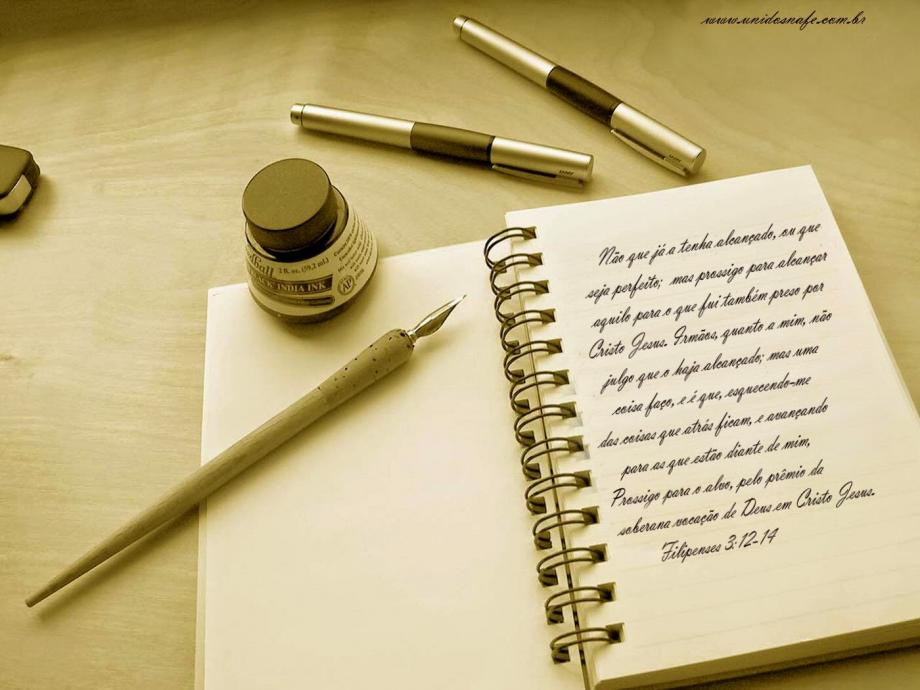 www.unidosnafe.com.br
2 fl. oz. (59,2 ml)
INDIA INK
AP
Não que já a tenha alcançado, ou que
seja perfeito; mas prossigo para alcançar
aquilo para o que fui também preso por
Cristo Jesus. Irmãos, quanto a mim, não
julgo que o haja alcançado; mas uma
coisa faço, e é que, esquecendo-me
das coisas que atrás ficam, e avançando
para as que estão diante de mim,
Prossigo para o alvo, pelo prêmio da
soberana vocação de Deus em Cristo Jesus.
Filipenses 3:12-14